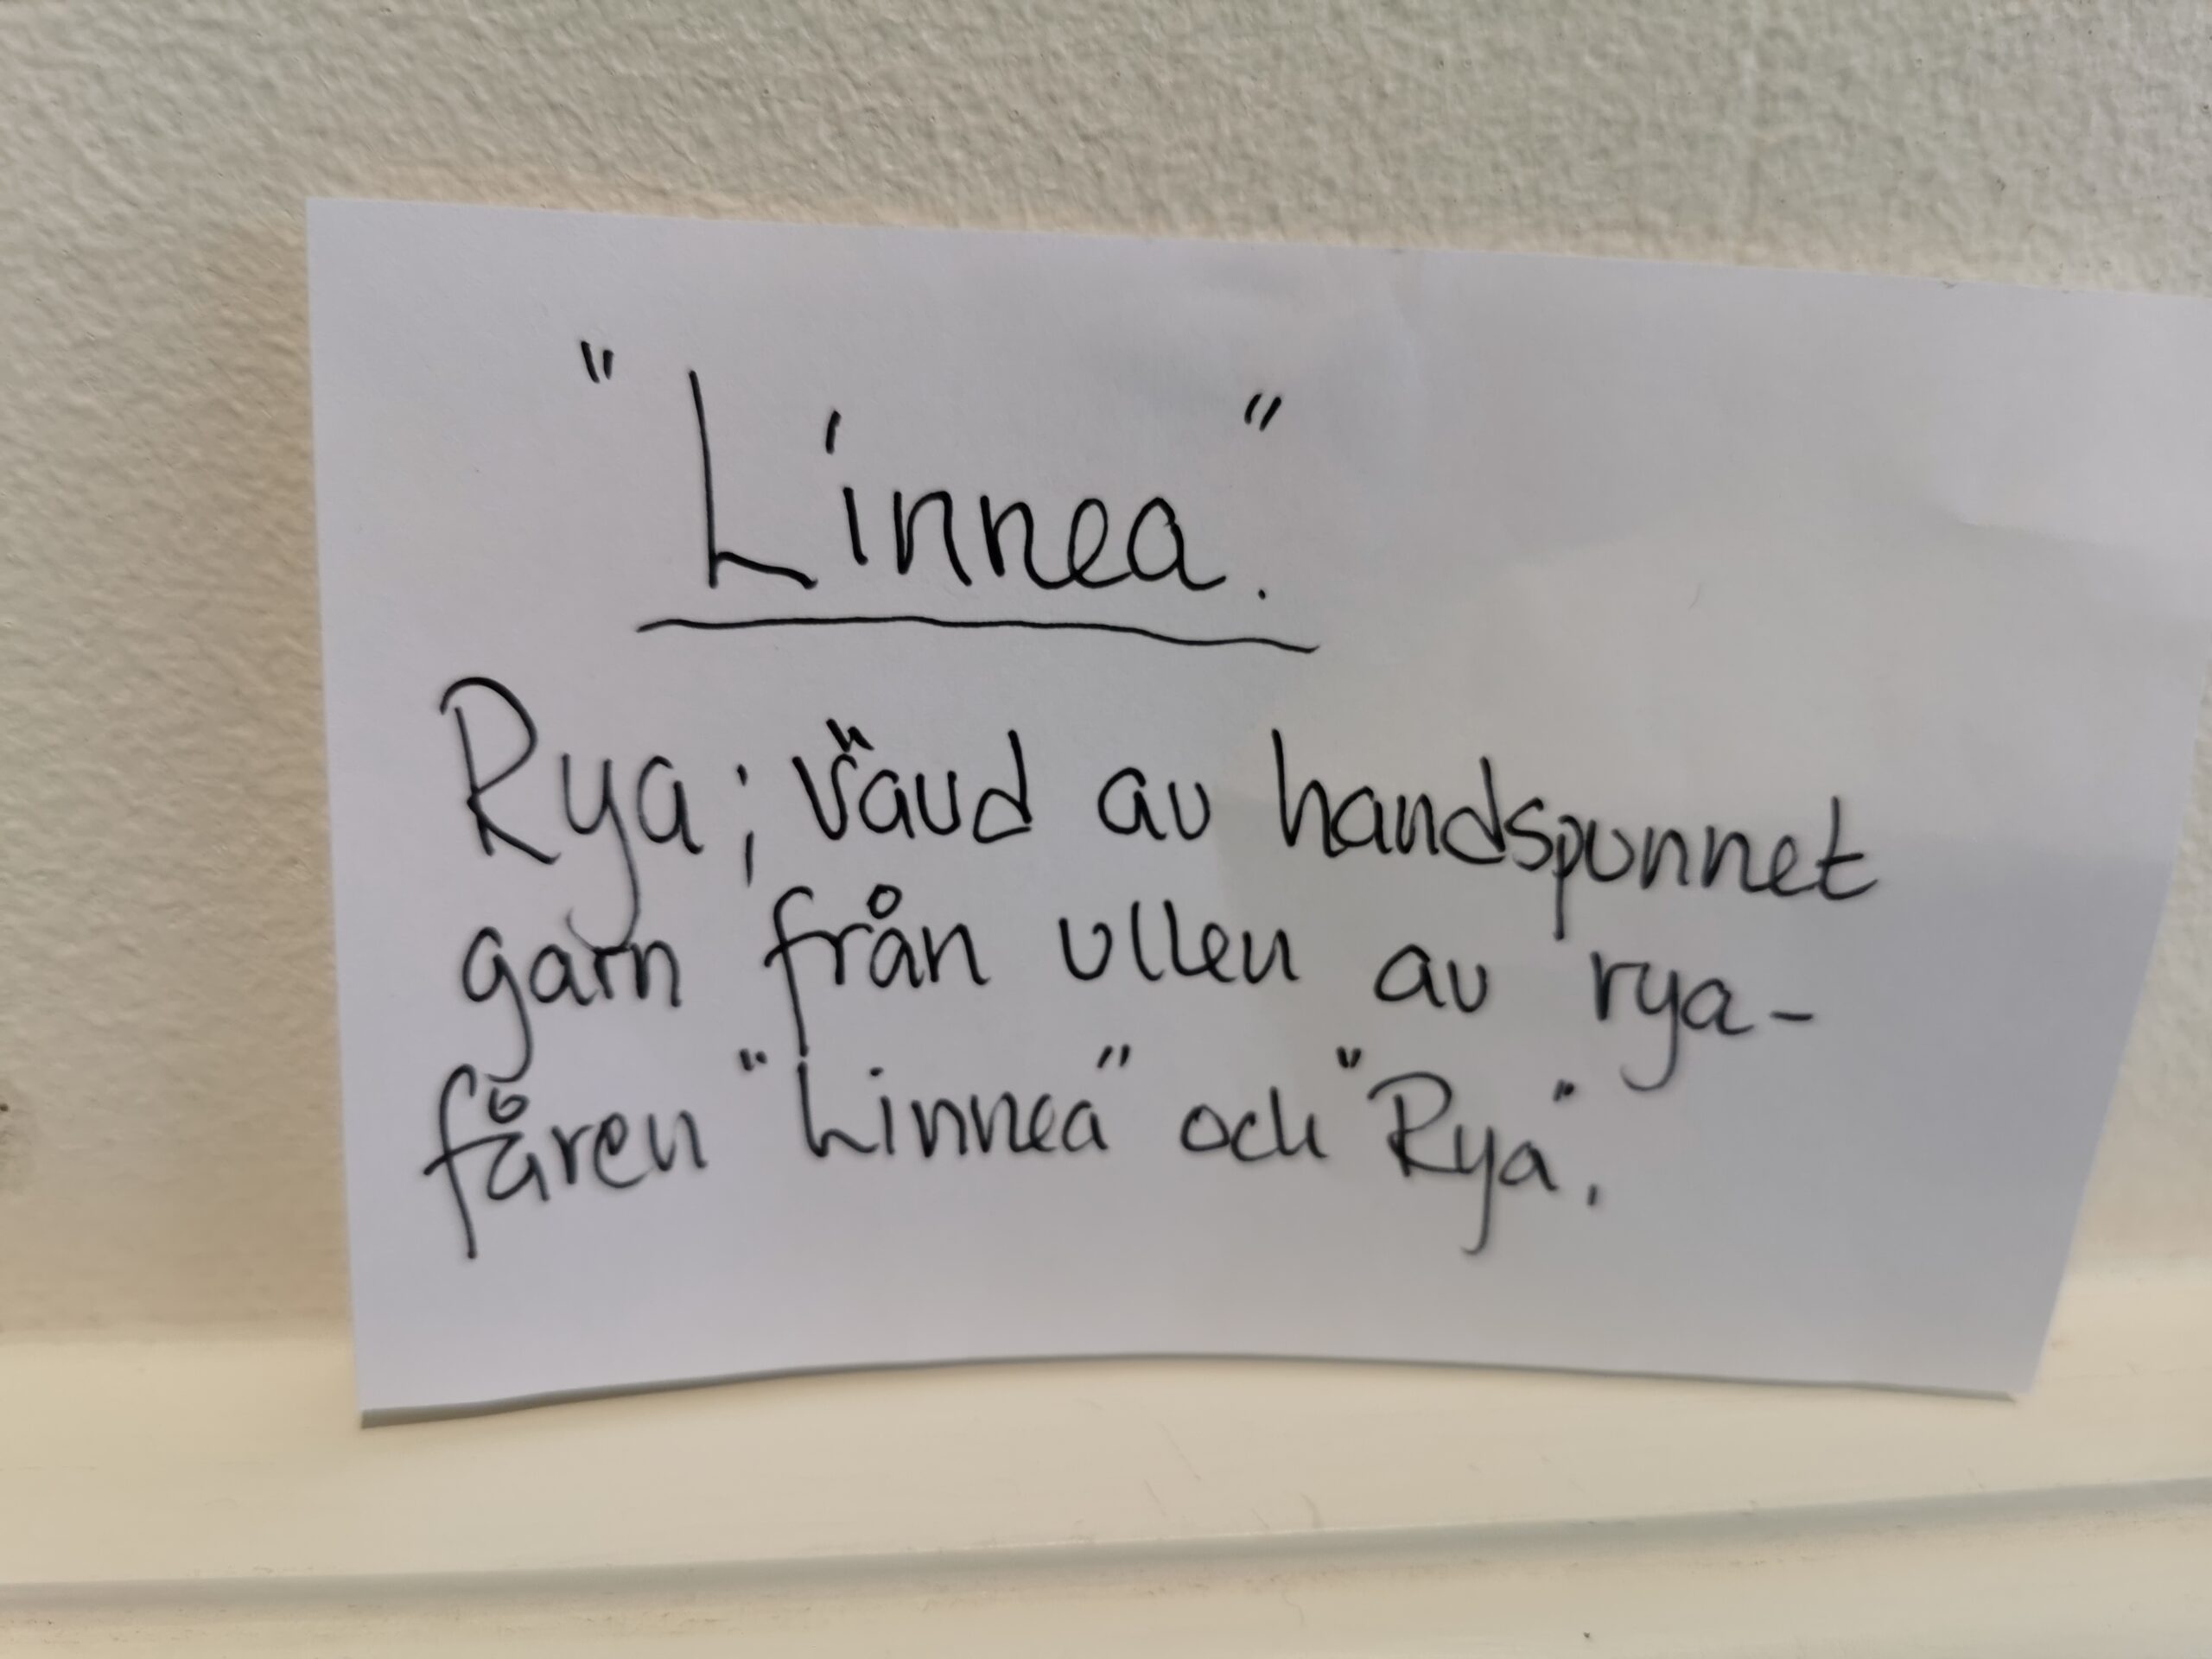 "Linnea."
Rya; vävd av handspunnet
garn från ullen av rya-
fåren "Linnea" och "Rya".